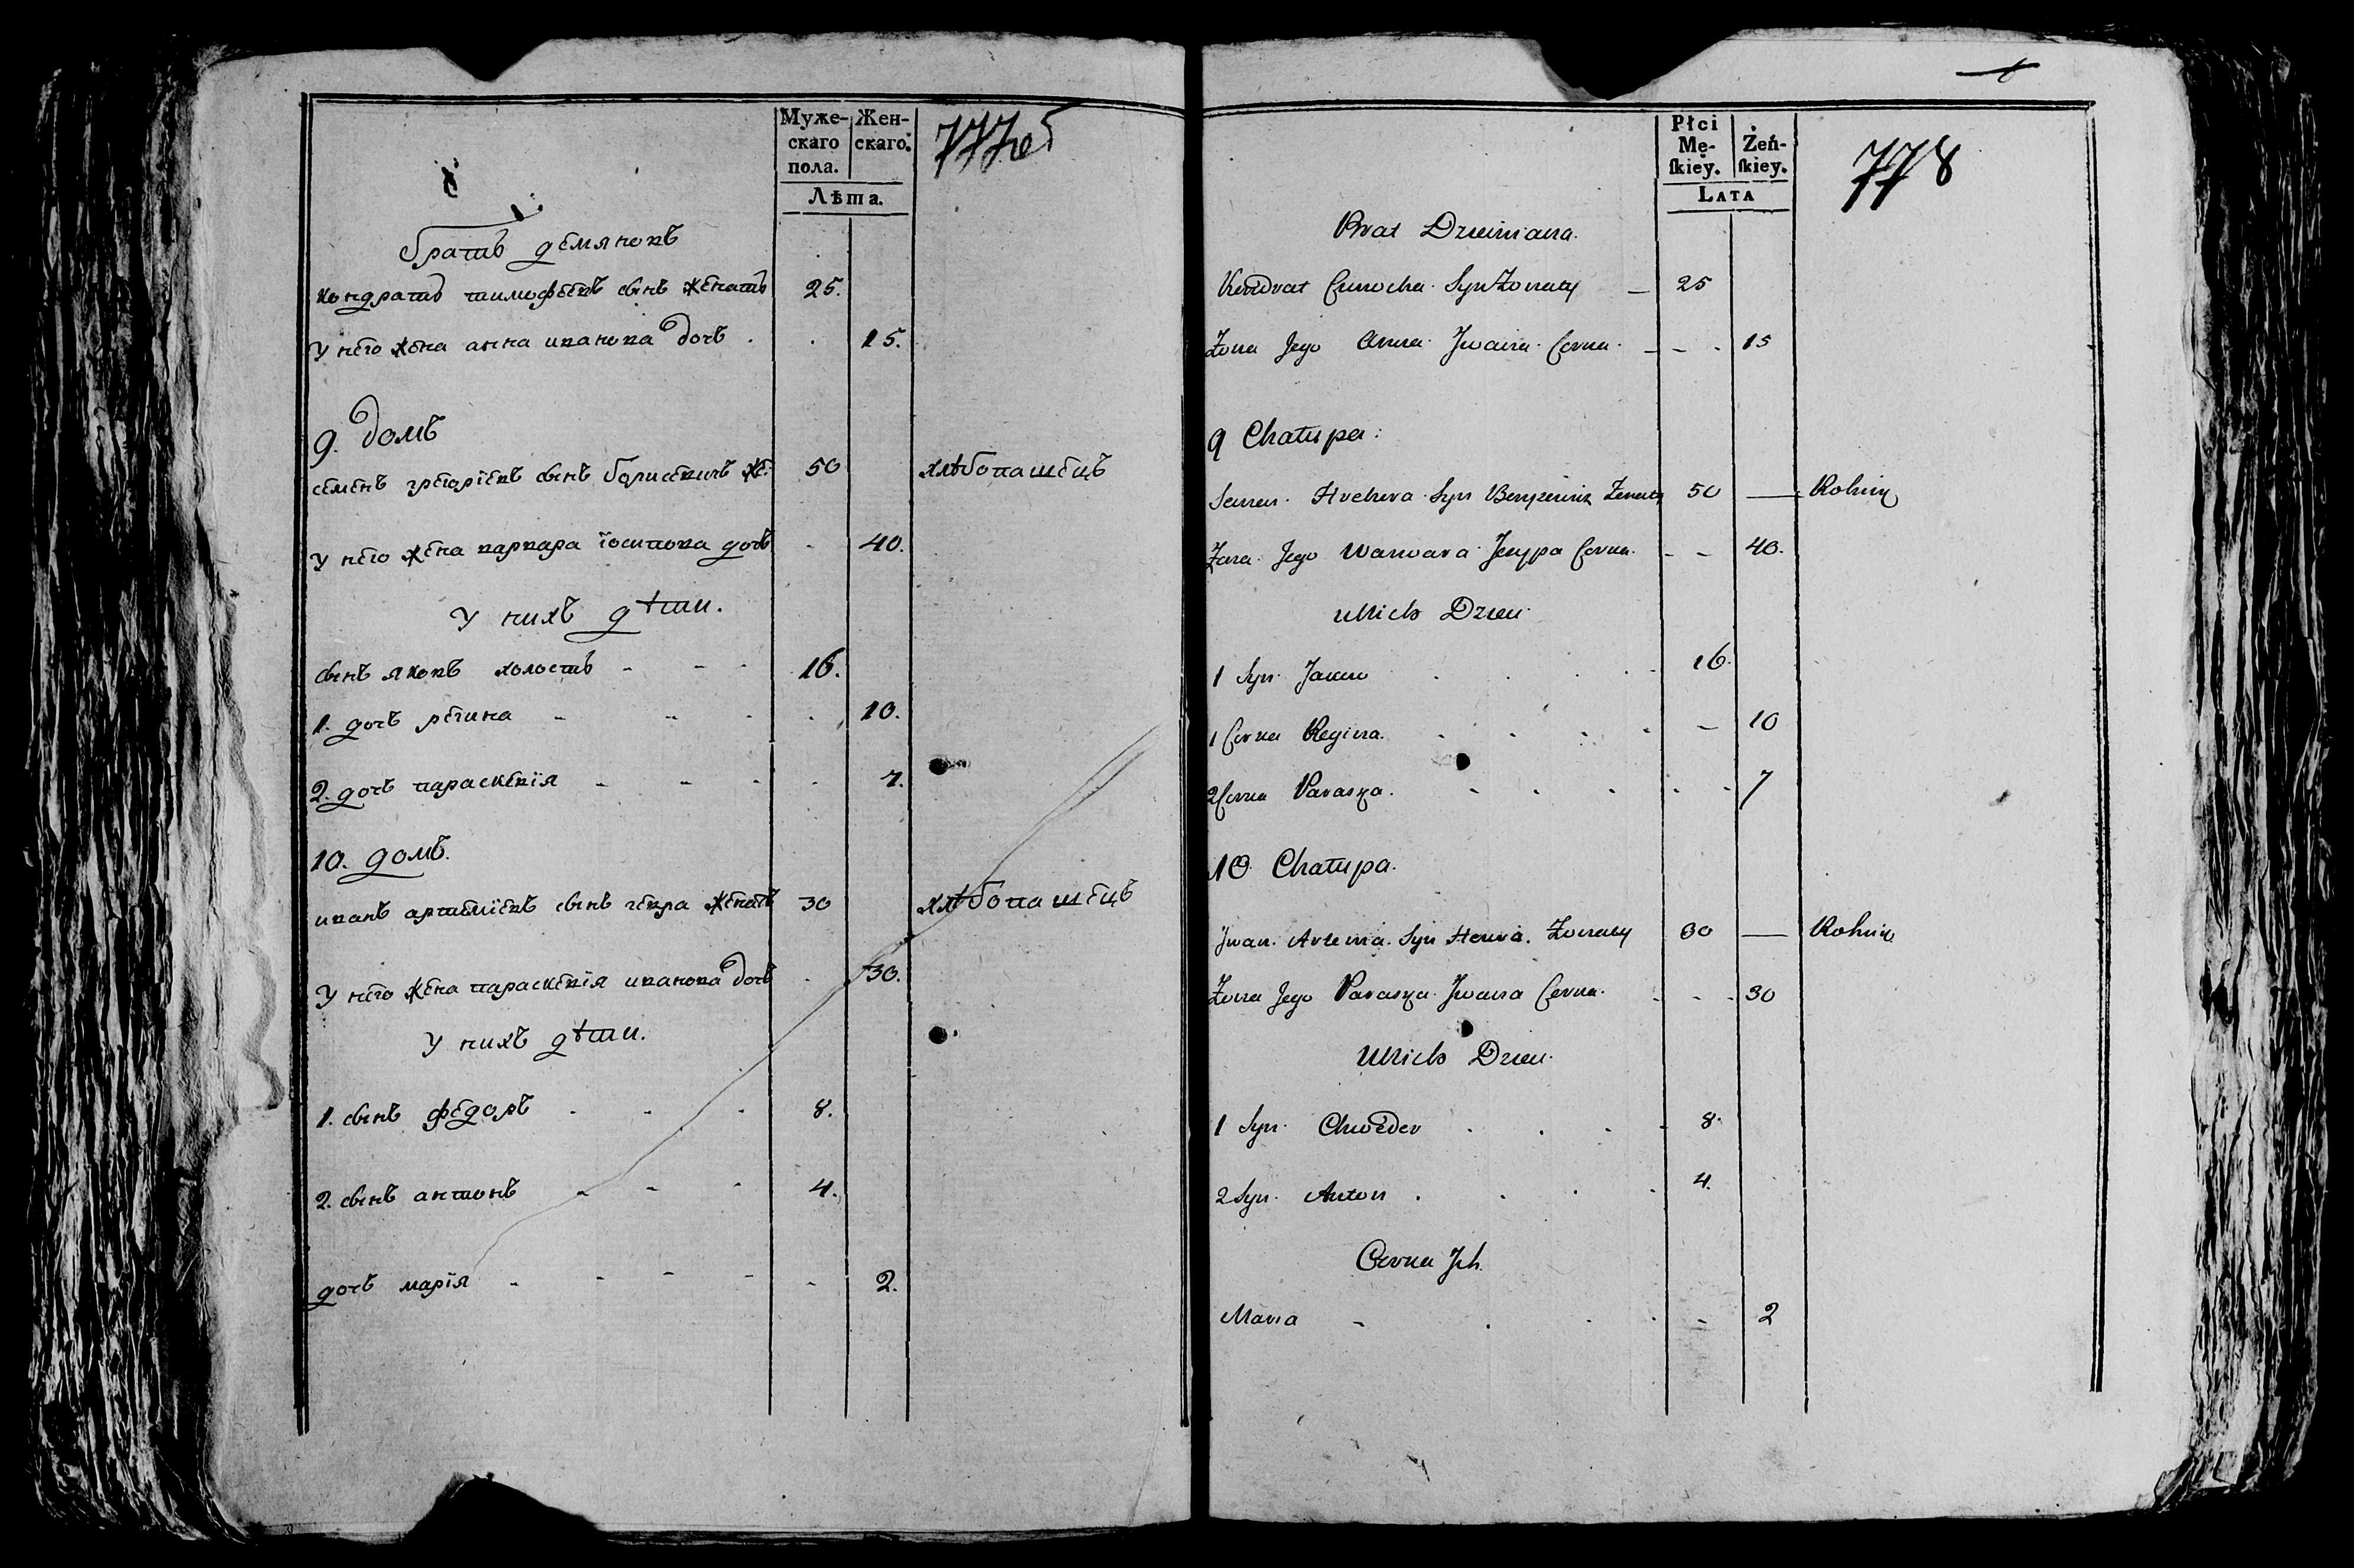 Муже-
скаго
пола.
Жен-
скаго.
Лѣта.
братъ демяновъ
кондратъ тимофеевъ сынъ женатъ 25.
у него жена анна иванова дочь . . 15.
9. домъ
семенъ грегорїевъ сынъ борисевичъ же: 50 хлѣбопашецъ
у него жена варвара їосипова дочь - 40.
у нихъ дѣти.
сынъ яковъ холостъ - - - 16.
1. дочь регина - - - . 10.
2. дочь параскевїя - - - . 7.
10. домъ.
иванъ артемїевъ сынъ гевра женатъ 30 хлѣбопашецъ
у него жена параскевїя иванова дочь . 30.
у нихъ дѣти.
1. сынъ федоръ . - . 8.
2. сынъ антонъ - - - 4.
дочь марїя - - - - - 2.
778
Płci
Mę-
ſkiey.
Żeń-
ſkiey.
LATA
Brat Dziemiana.
Kondrat Syn Żonaty — 25
Żona Jego Anna Jwana Corka. — - . 15
9 Chałupa:
Semen Syn Żonaty 50 — Rolnik
Żona Jego Warwara Jozypa Corka. - - 40.
u Nich Dzieci
1 Syn Jakow . . . . 16.
1 Corka Regina. . . . . - 10
2 Corka Paraszka. . . . . . 7
10 Chałupa.
Jwan. Artema. Syn Hewra. Żonaty 30 — Rolnik
Żona Jego Paraszka Jwana Corka. . . . 30
U Nich Dzieci
1 Syn Chwedor . . . . 8.
2 Syn Anton . . . . 4.
Corka Jch
Maria - . . . - 2